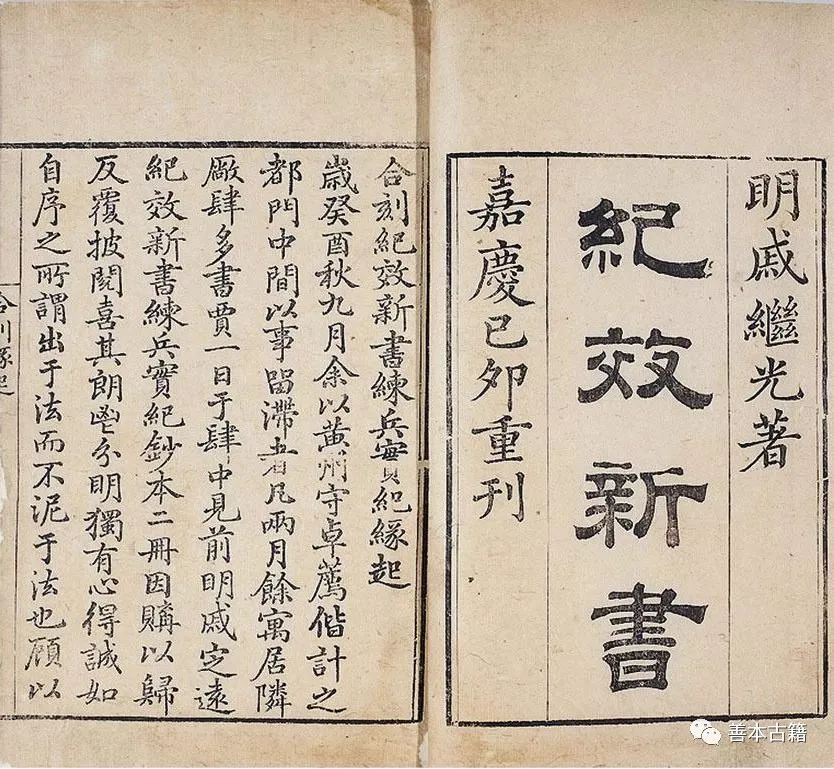 明戚繼光著
紀效新書
嘉慶己卯重刊
合刻紀效新書練兵實紀緣起
歲癸酉秋九月余以黃州守卓薦偕計之
都門中間以事留滯者凡兩月餘寓居隣
廠肆多書賈一日于肆中見前明戚定遠
紀效新書練兵實紀鈔本二冊因購以歸
反覆披閱喜其朗鬯分明獨有心得誠如
自序之所謂出于法而不泥于法也顧以
合刊緣起
善本古籍